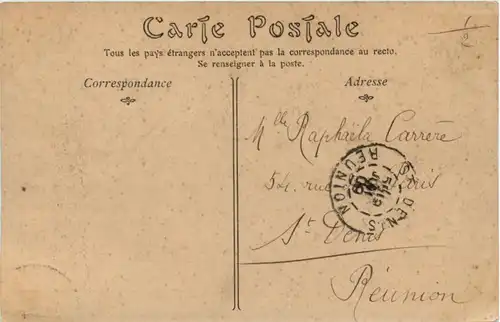 Carte Postale
Tous les pays étrangers n'acceptent pas la correspondance au recto.
Se renseigner à la poste.
Correspondance
Adresse
Mlle Raphaëla Carrère
54 rue Paris
St Denis
Réunion
ST DENIS
RÉUNION